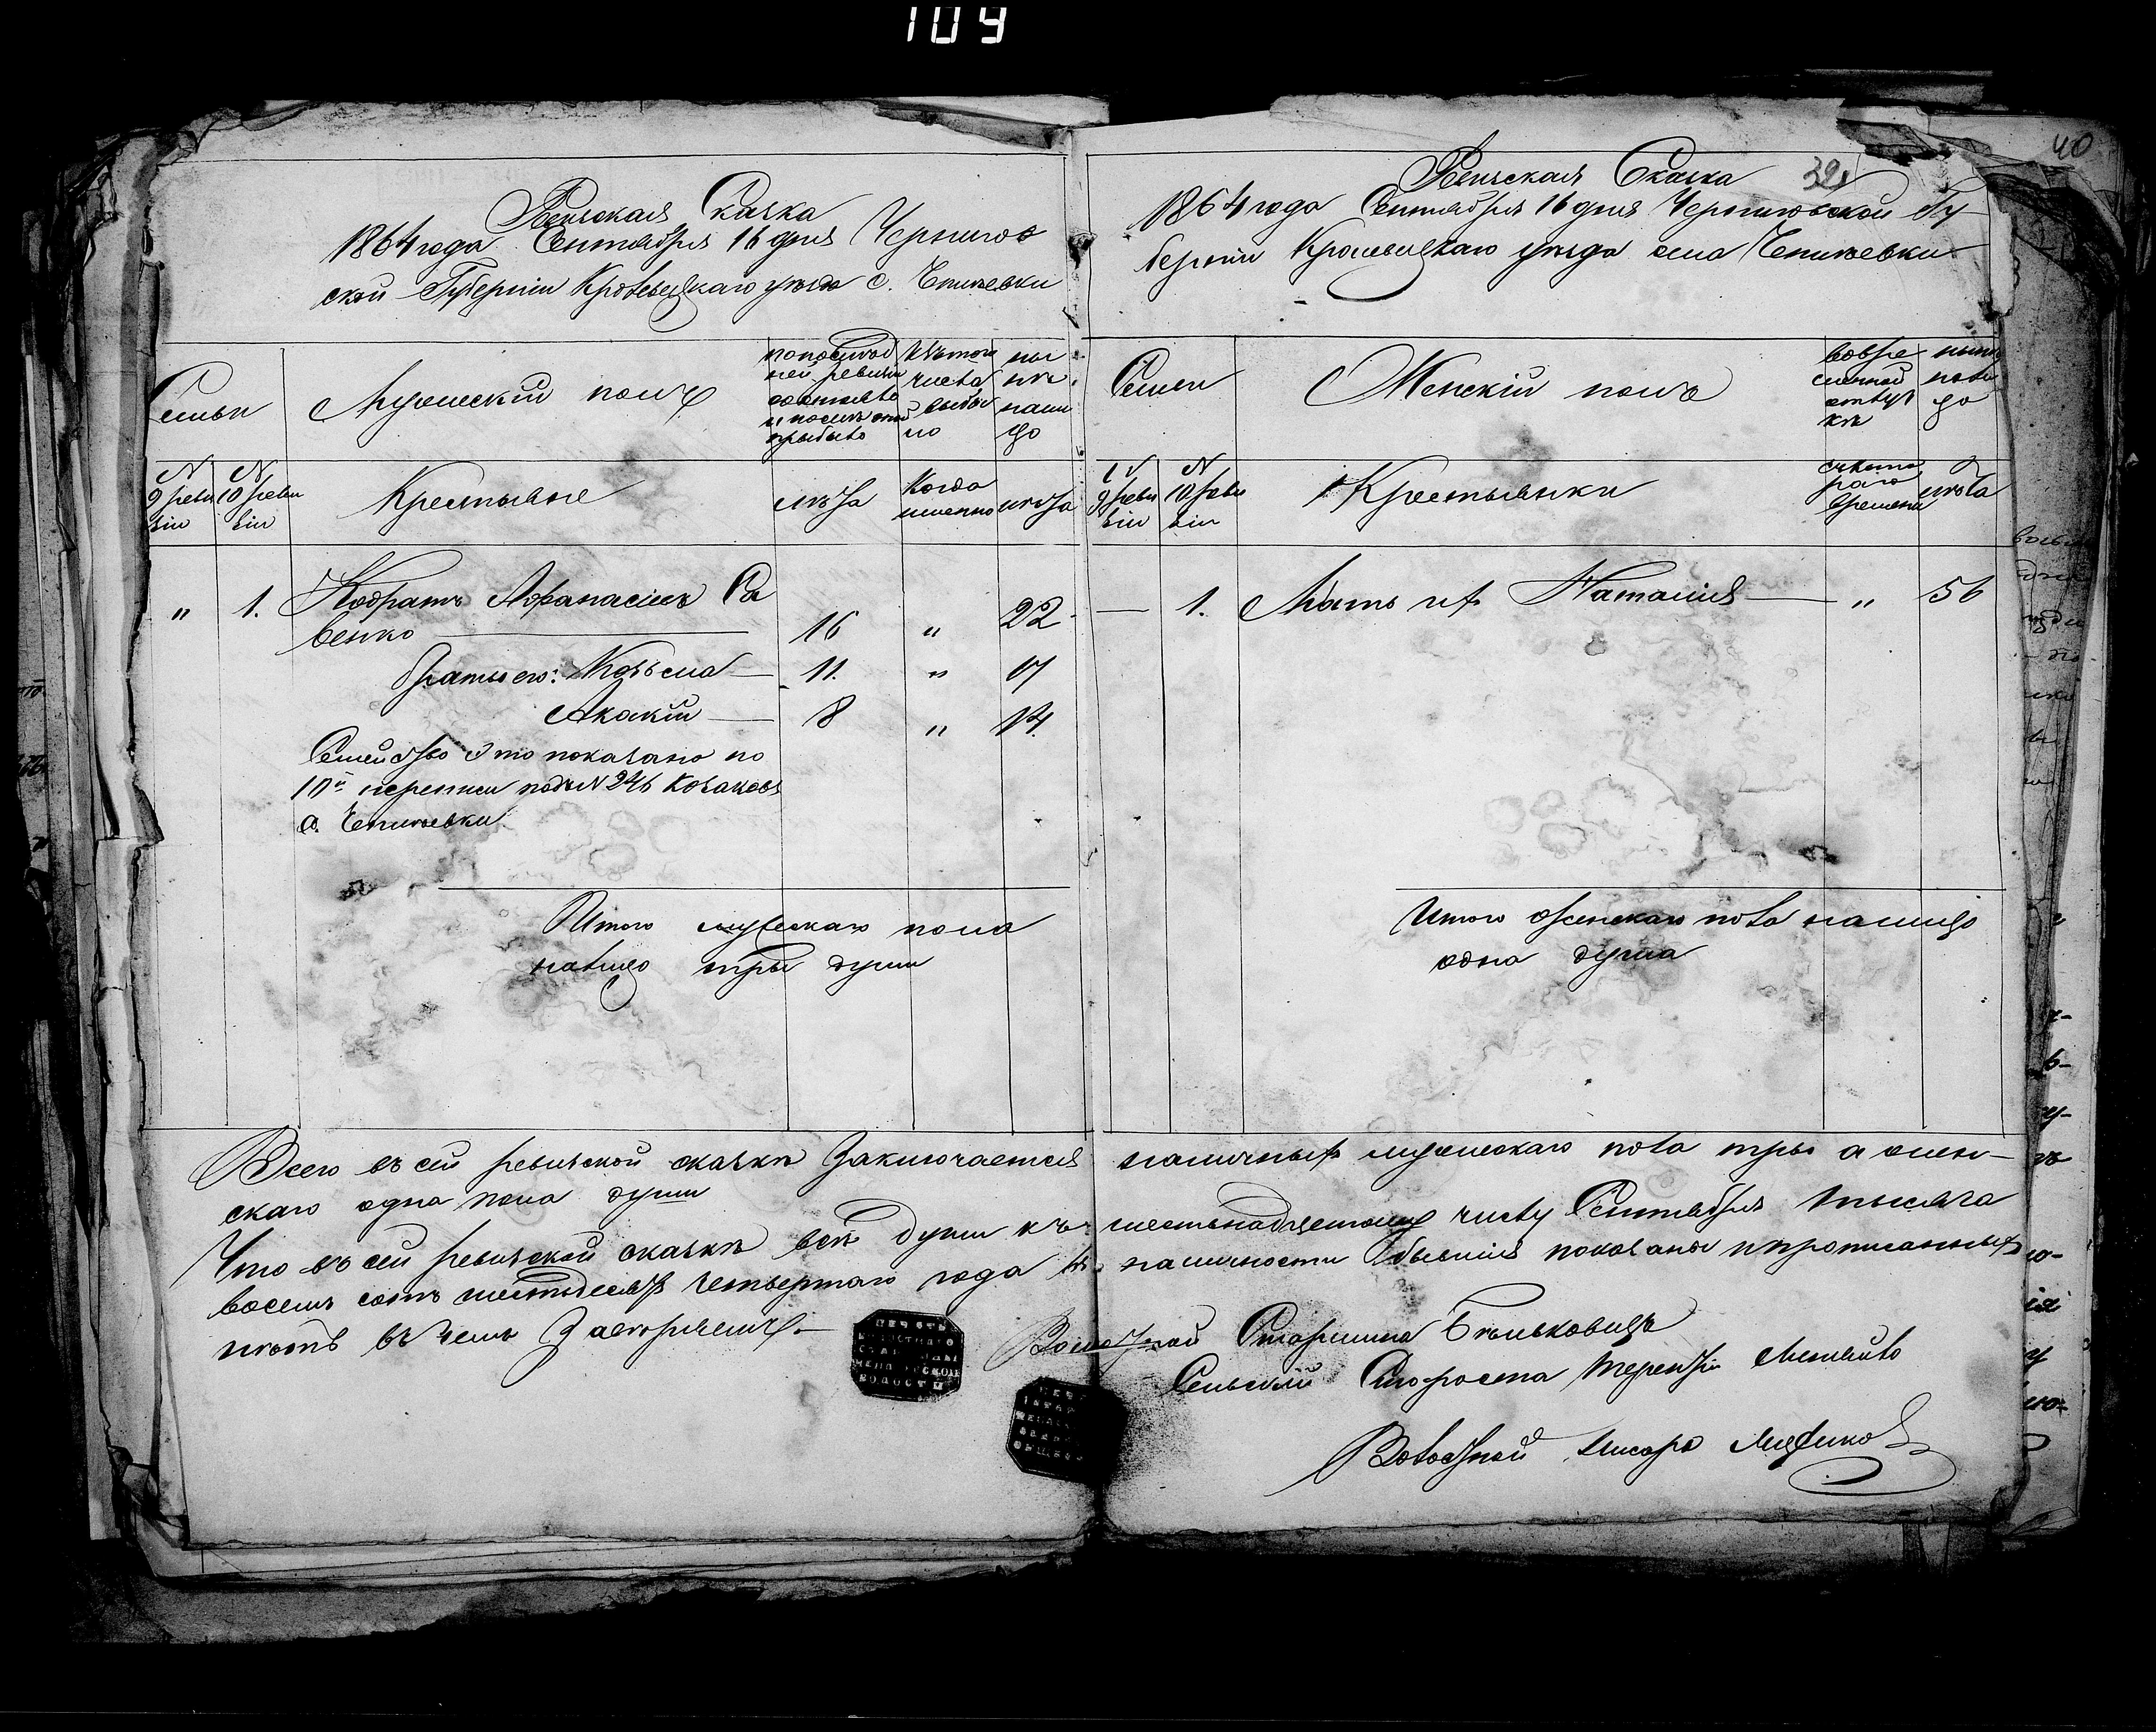 109
40
Ревизская Сказка
1864 года Сентября 16 дня Чернигов
ской Губернии Кролевецкаго уезда с. Чепиевки
Семьи
Мужеский полъ
по последней ревизии состояло и после оной прибыло
Изъ того числа выбыло
ныне на лицо
N 9 ревизіи
N 10 ревизіи
Крестьяне
лета
Когда именно
лета
" 1. Кодратъ Афанасіевъ Са
венко 16 " 22
братья его: Козьма 11. " 17
Акакій 8 " 14
Семейство это показано по
10й переписи подъ N 246 Козаковъ
с. Чепиевки
Итого мужескаго пола
налицо три души
Ревизская Сказка 32
1864 года Сентября 16 дня Черниговской Гу
берніи Кролевецкаго уезда села Чепиевки
Семьи
Женскій полъ
во временной отлучке
ныне налицо
N 9 ревизіи
N 10 ревизіи
Крестьянки
съ котораго времени
лета
— 1. Мать их Наталія — " 56
Итого женскаго пола налицо
одна душа
Всего въ сей ревизской сказке Заключается наличных мужескаго пола три а жен
скаго одна пола души
Что въ сей ревизской сказке все души къ шестьнадцатому числу Сентября тысяча
восемь сотъ шестьдесятъ четвертаго года въ наличности бывшія показаны и прописанных
нетъ въ чемъ Заверяемъ
Волостной Старшина Бельковецъ
Сельскій Староста Терентій
Волостной Писарь
ПЕЧАТЬ
ВОЛОСТНАГО
СТАРШИНЫ
МЕНСКОЙ
ВОЛОСТИ